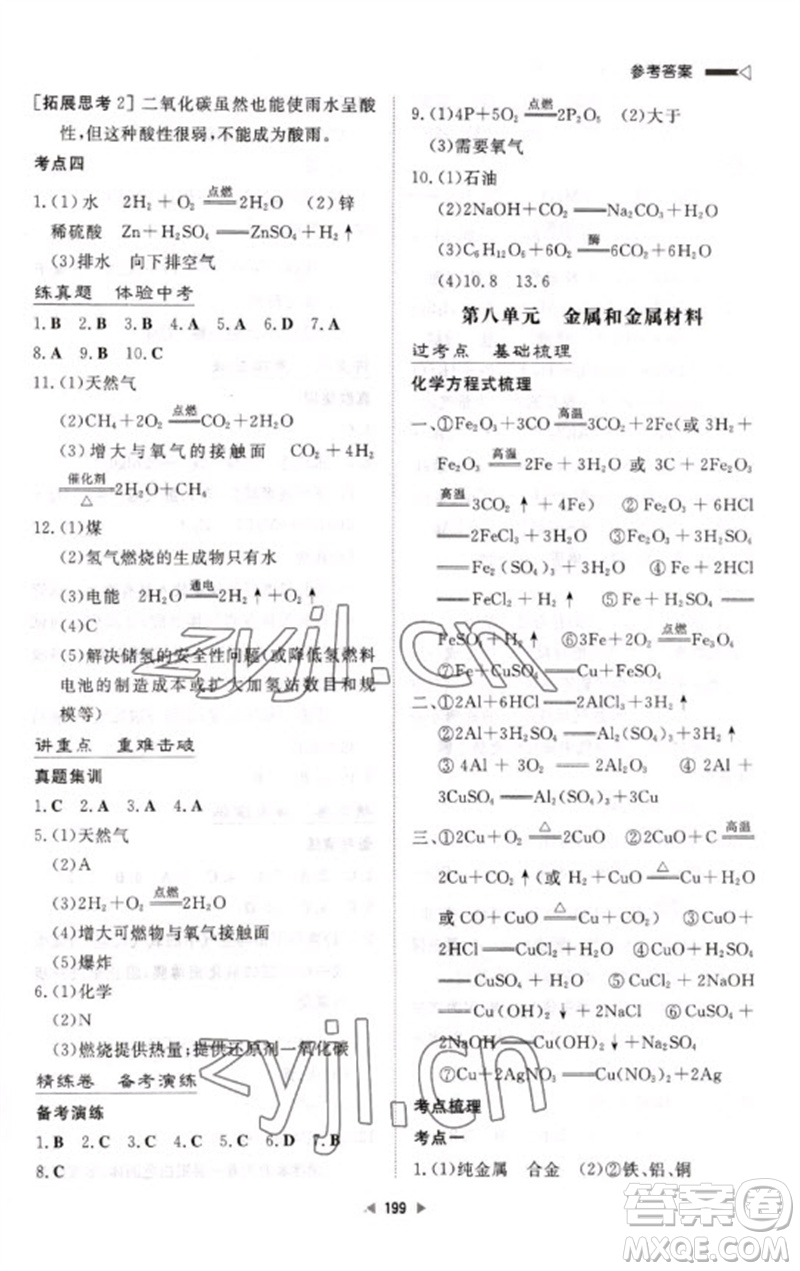 参考答案
[拓展思考2] 二氧化碳虽然也能使雨水呈酸
性,但这种酸性很弱,不能成为酸雨。
考点四
1.(1)水 2H₂+O₂ =点燃= 2H₂O (2)锌
稀硫酸 Zn+H₂SO₄ = ZnSO₄+H₂↑
(3)排水 向下排空气
练真题 体验中考
1.B 2.B 3.B 4.A 5.A 6.D 7.A
8.A 9.B 10.C
11.(1)天然气
(2)CH₄+2O₂ =点燃= CO₂+2H₂O
(3)增大与氧气的接触面 CO₂+4H₂
=催化剂/△= 2H₂O+CH₄
12.(1)煤
(2)氢气燃烧的生成物只有水
(3)电能 2H₂O =通电= 2H₂↑+O₂↑
(4)C
(5)解决储氢的安全性问题(或降低氢燃料
电池的制造成本或扩大加氢站数目和规
模等)
讲重点 重难击破
真题集训
1.C 2.A 3.A 4.A
5.(1)天然气
(2)A
(3)2H₂+O₂ =点燃= 2H₂O
(4)增大可燃物与氧气接触面
(5)爆炸
6.(1)化学
(2)N
(3)燃烧提供热量;提供还原剂一氧化碳
精练卷 备考演练
备考演练
1.B 2.C 3.C 4.C 5.D 6.D 7.B
8.C
9.(1)4P+5O₂ =点燃= 2P₂O₅ (2)大于
(3)需要氧气
10.(1)石油
(2)2NaOH+CO₂ = Na₂CO₃+H₂O
(3)C₆H₁₂O₆+6O₂ =酶= 6CO₂+6H₂O
(4)10.8 13.6
第八单元 金属和金属材料
过考点 基础梳理
化学方程式梳理
一、①Fe₂O₃+3CO =高温= 3CO₂+2Fe(或 3H₂+
Fe₂O₃ =高温= 2Fe+3H₂O 或 3C+2Fe₂O₃
=高温= 3CO₂↑+4Fe) ②Fe₂O₃+6HCl
= 2FeCl₃+3H₂O ③Fe₂O₃+3H₂SO₄
= Fe₂(SO₄)₃+3H₂O ④Fe+2HCl
= FeCl₂+H₂↑ ⑤Fe+H₂SO₄ =
FeSO₄+H₂↑ ⑥3Fe+2O₂ =点燃= Fe₃O₄
⑦Fe+CuSO₄ = Cu+FeSO₄
二、①2Al+6HCl = 2AlCl₃+3H₂↑
②2Al+3H₂SO₄ = Al₂(SO₄)₃+3H₂↑
③4Al+3O₂ = 2Al₂O₃ ④2Al+
3CuSO₄ = Al₂(SO₄)₃+3Cu
三、①2Cu+O₂ =△= 2CuO ②2CuO+C =高温=
2Cu+CO₂↑(或 H₂+CuO =△= Cu+H₂O
或 CO+CuO =△= Cu+CO₂) ③CuO+
2HCl = CuCl₂+H₂O ④CuO+H₂SO₄
= CuSO₄+H₂O ⑤CuCl₂+2NaOH
= Cu(OH)₂↓+2NaCl ⑥CuSO₄+
2NaOH = Cu(OH)₂↓+Na₂SO₄
⑦Cu+2AgNO₃ = Cu(NO₃)₂+2Ag
考点梳理
考点一
1.(1)纯金属 合金 (2)②铁、铝、铜
199
zyjl.cn
zyjl.cn
答案圈